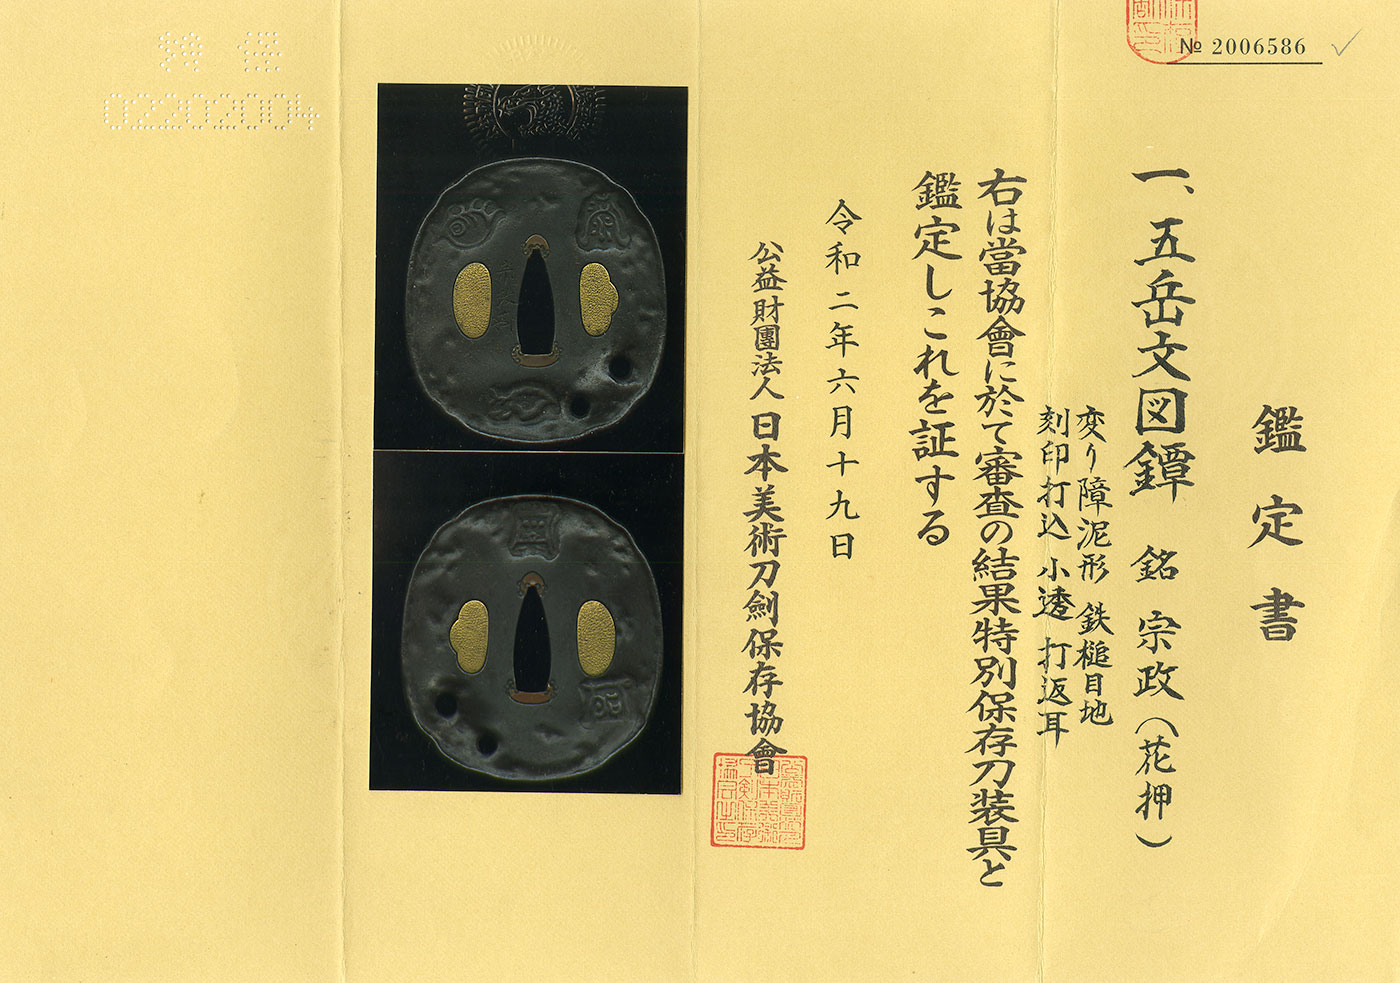 № 2006586
鑑定書
一、五岳文図鐔 銘 宗政（花押）
変り障泥形 鉄槌目地
刻印打込 小透 打返耳
右は當協會に於て審査の結果特別保存刀装具と
鑑定しこれを証する
令和二年六月十九日
公益財團法人 日本美術刀劍保存協會
02202004